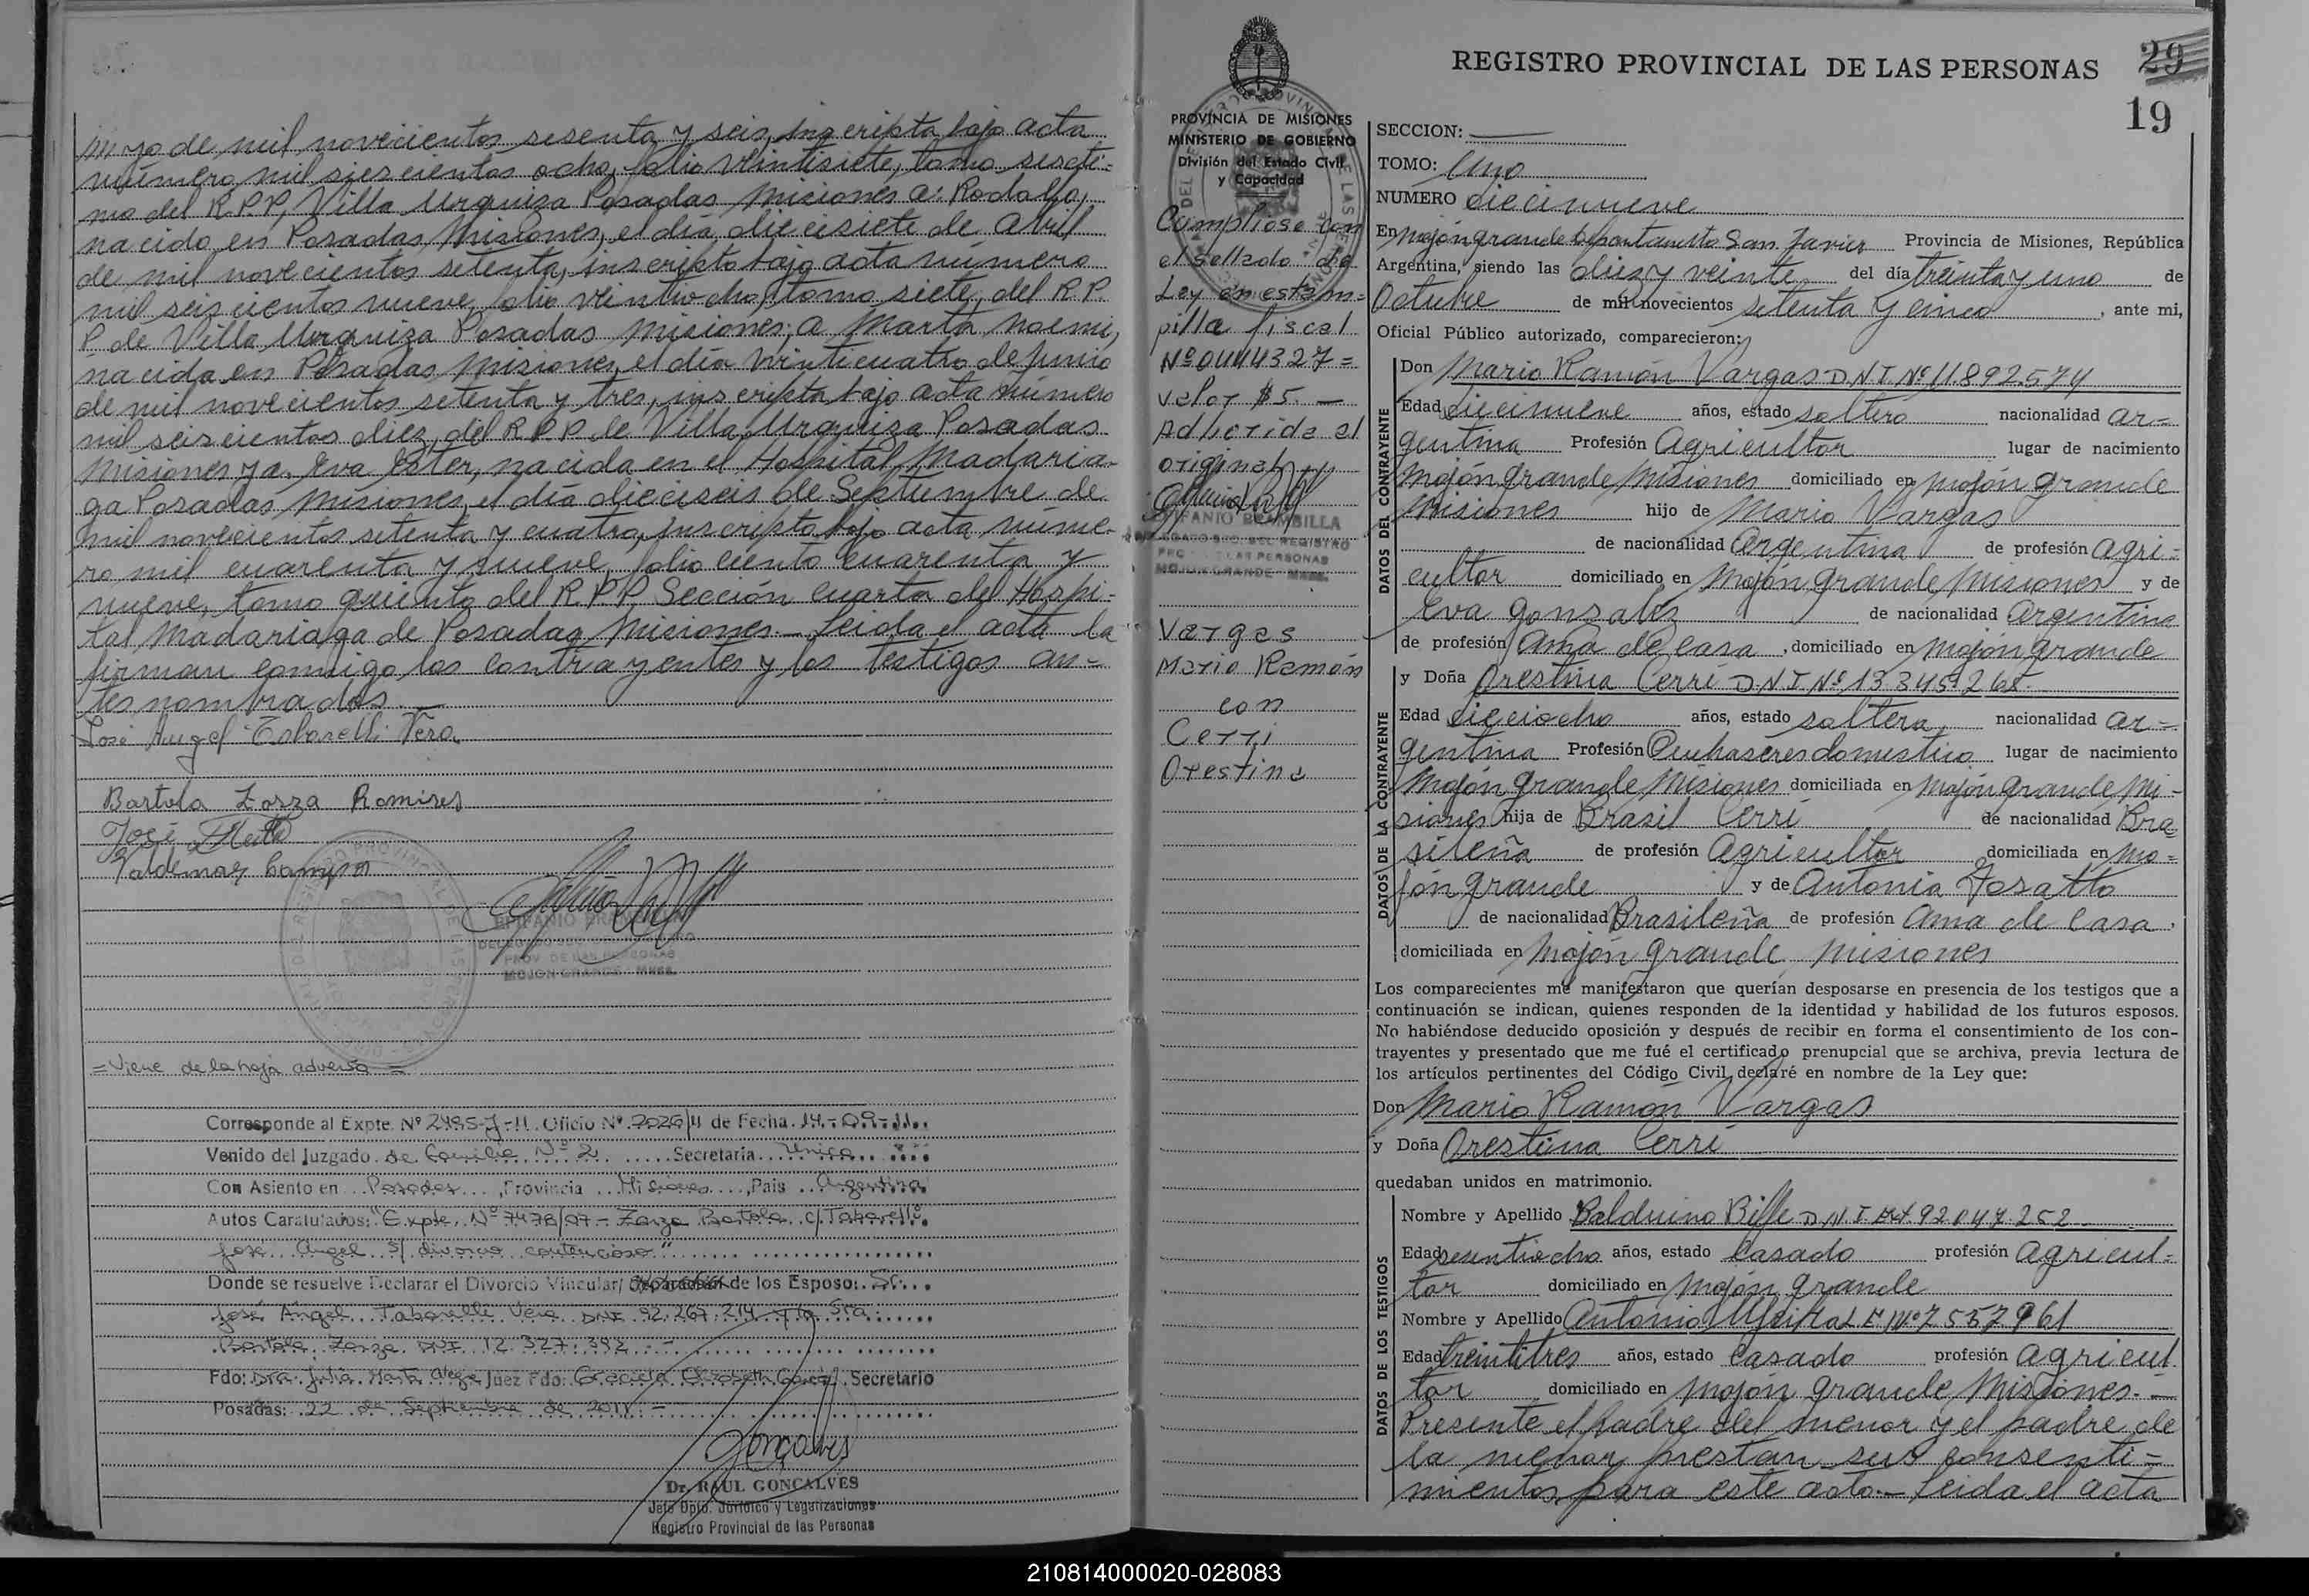 mayo de mil novecientos sesenta y seis, inscripta bajo acta
número mil seiscientos ocho, folio veintisiete, tomo seseti-
mo del R.P.P, Villa Urquiza Posadas Misiones a: Rodolfo,
nacido en Posadas Misiones, el día diecisiete de Abril
de mil novecientos setenta, inscripto bajo acta número
mil seiscientos nueve, folio veintiocho, tomo siete, del R.P.
P. de Villa Urquiza Posadas Misiones; a Marta Noemi,
nacida en Posadas Misiones, el día veinticuatro de Junio
de mil novecientos setenta y tres, inscripta bajo acta número
mil seiscientos diez, del R.P.P. de Villa Urquiza Posadas
Misiones y a. Eva Ester, nacida en el Hospital Madaria-
ga Posadas Misiones, el día dieciseis de Septiembre de
mil novecientos setenta y cuatro, inscripta bajo acta núme-
ro mil cuarenta y nueve, folio ciento cuarenta y
nueve, tomo quinto del R.P.P. Sección cuarta del Hospi-
tal Madariaga de Posadas Misiones.- Leida el acta la
firman conmigo los contrayentes y los testigos an-
tes nombrados.
José Angel Tabarelli Vera
Bartola Zarza Ramires
José
Valdemar Campos
EPIFANIO BRAMBILLA
PROV DE LAS PERSONAS
MOJON GRANDE - Mnes.
= Viene de la hoja adversa =
Corresponde al Expte. Nº 2495-J-11. Oficio Nº 2026/11 de Fecha 14-09-11..
Venido del Juzgado de Familia Nº 2 Secretaría Unica
Con Asiento en Posadas, Provincia Misiones, Pais Argentina
Autos Caratulados: "Expte. Nº 7478/07 - Zarza Bartola c/ Tabarelli
José Angel s/ divorcio contencioso"
Donde se resuelve Declarar el Divorcio Vincular/ de los Esposo: Sr.
José Ángel Tabarelli Vera DNI 92.267.214 y la Sra.
Bartola Zarza DNI 12.327.392 -
Fdo: Dra. Julia Marta Alega Juez Fdo: Graciela Elizabeth Secretario
Posadas: 22 de Septiembre de 2011 -
Goncalves
Dr. RAUL GONCALVES
Jefe Dpto. Jurídico y Legalizaciones
Registro Provincial de las Personas
REGISTRO PROVINCIAL DE LAS PERSONAS
29
19
PROVINCIA DE MISIONES
MINISTERIO DE GOBIERNO
División del Estado Civil
y Capacidad
Cumpliose con
el sellado de
Ley en estam=
pilla fiscal
Nº 0444327=
valor $5. -
Adherida al
original
EPIFANIO BRAMBILLA
DELEGADO SEC. DEL REGISTRO
PROV DE LAS PERSONAS
MOJON GRANDE Mnes.
Vargas
Mario Ramón
con
Cerri
Orestina
SECCION:
TOMO: Uno
NUMERO diecinueve
En Mojón grande Departamento San Javier Provincia de Misiones, República
Argentina, siendo las diez y veinte del día treinta y uno de
Octubre de mil novecientos setenta y cinco, ante mi,
Oficial Público autorizado, comparecieron:
DATOS DEL CONTRAYENTE
Don Mario Ramón Vargas D.N.I. Nº 11.892.574
Edad diecinueve años, estado soltero nacionalidad ar-
gentina Profesión Agricultor lugar de nacimiento
Mojón grande Misiones domiciliado en Mojón grande
Misiones hijo de Mario Vargas
de nacionalidad Argentina de profesión agri-
cultor domiciliado en Mojón grande Misiones y de
Eva Gonzalez de nacionalidad argentina
de profesión ama de casa, domiciliado en Mojón grande
DATOS DE LA CONTRAYENTE
y Doña Orestina Cerri D.N.I. Nº 13.345.265.
Edad dieciocho años, estado soltera, nacionalidad ar-
gentina Profesión Quehaseres domestico lugar de nacimiento
Mojón grande Misiones domiciliada en Mojón grande Mi-
siones hija de Brasil Cerri de nacionalidad Bra-
sileña de profesión Agricultor domiciliada en Mo-
jón grande y de Antonia Fosatto
de nacionalidad Brasileña de profesión ama de casa,
domiciliada en Mojón grande Misiones
Los comparecientes me manifestaron que querían desposarse en presencia de los testigos que a
continuación se indican, quienes responden de la identidad y habilidad de los futuros esposos.
No habiéndose deducido oposición y después de recibir en forma el consentimiento de los con-
trayentes y presentado que me fué el certificado prenupcial que se archiva, previa lectura de
los artículos pertinentes del Código Civil, declaré en nombre de la Ley que:
Don Mario Ramón Vargas
y Doña Orestina Cerri
quedaban unidos en matrimonio.
DATOS DE LOS TESTIGOS
Nombre y Apellido Balduino Biffe D.N.I. Ext. 92.047.252
Edad sesentiocho años, estado Casado profesión agricul-
tor domiciliado en Mojón grande
Nombre y Apellido Antonio L.E. Nº 7.557.961
Edad treintitres años, estado Casado profesión agricul
tor domiciliado en Mojón grande Misiones.-
Presente el padre del menor y el padre de
la menor prestan sus consenti=
mientos para este acto.- Leida el acta
210814000020-028083